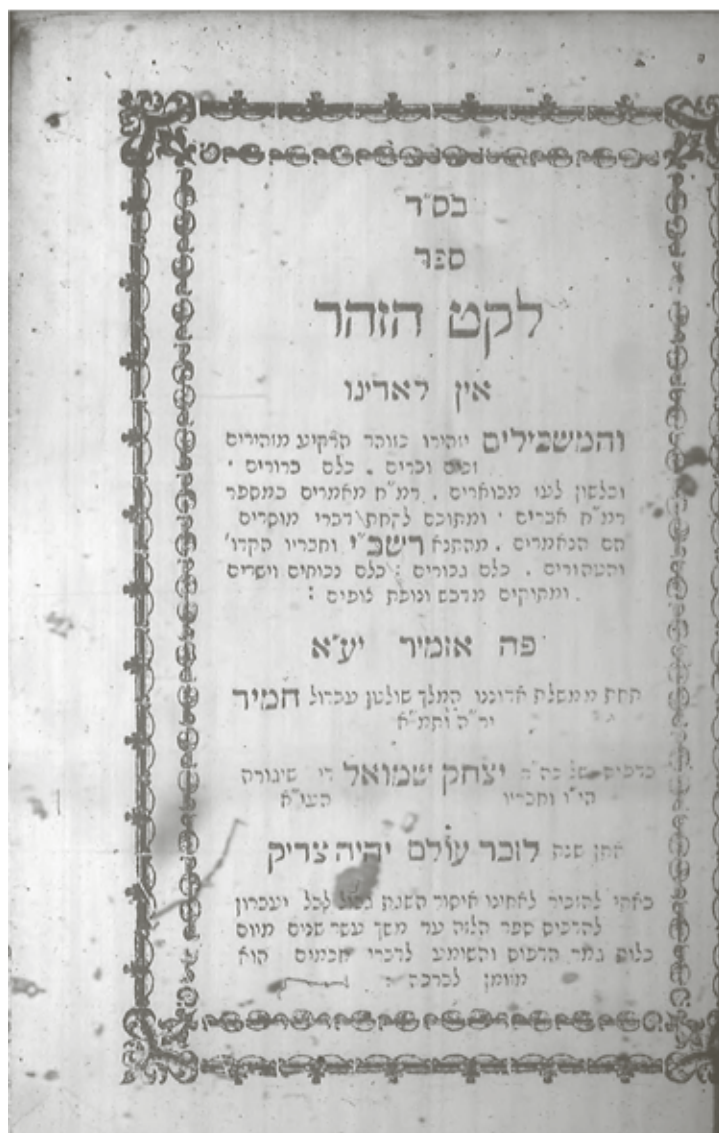 בס״ד
ספר
לקט הזהר
אין לאדינו
והמשכילים יזהירו כזוהר הרקיע מזהירים
זכים וברים . כלם ברורים .
ובלשון לעז מבוארים . רמ״ח מאמרים כמספר
רמ״ח אברים . ומתוכם לקחת דברי מוסרים
הם הנאמרים . מהתנא רשב״י וחבריו הקדו'
והטהורים . כלם גבורים : כלם נכוחים וישרים
ומתוקים מדבש ונופת צופים :
פה אזמיר יע״א
תחת ממשלת אדוננו המלך שולטן עבדול חמיד
יר״ה ותמ״א
בדפוס של כה״ר יצחק שמואל די שיגורה
הי״ו וחבריו הצו״א
שנת לזכר עולם יהיה צדיק
באתי להזכיר לאחינו איסור השגת גבול לבל יעברון
להדפיס ספר הלזה עד משך עשר שנים מיום
כלות גמר הדפוס והשומע לדברי חכמים הוא
מזומן לברכה